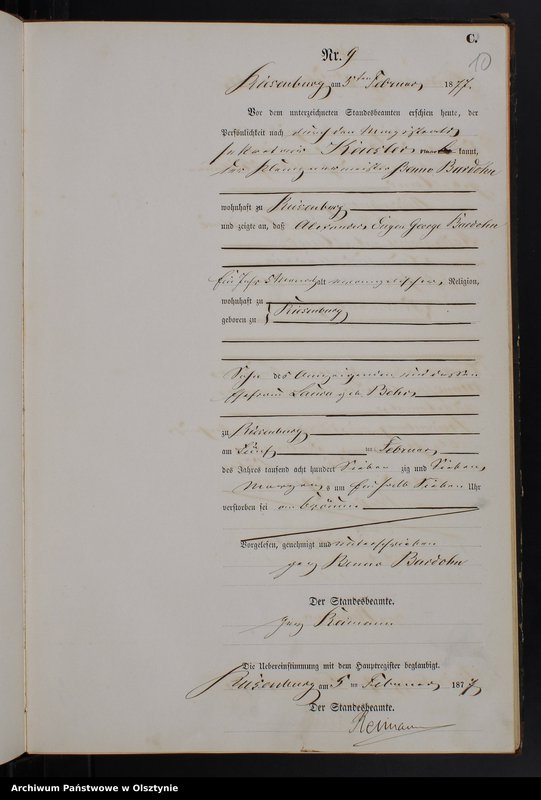 C.
10
Nr. 9
Riesenburg am 5ten Februar 1877.
Vor dem unterzeichneten Standesbeamten erschien heute, der
Persönlichkeit nach durch den
Koester kannt,
der Benno Baedohn
wohnhaft zu Riesenburg
und zeigte an, daß Alexander Eugen George Baedohn
ein Jahr 5 Monat alt evangelischer Religion,
wohnhaft zu
geboren zu Riesenburg
Sohn des Anzeigenden und dessen
Ehefrau Laura geb. Behr
zu Riesenburg
am fünf ten Februar
des Jahres tausend acht hundert sieben zig und sieben
Morgens um ein halb sieben Uhr
verstorben sei
Vorgelesen, genehmigt und unterschrieben
gez Benno Baedohn
Der Standesbeamte.
gez Reimann
Die Uebereinstimmung mit dem Hauptregister beglaubigt.
Riesenburg am 5 ten Februar 1877
Der Standesbeamte.
Reimann
Archiwum Państwowe w Olsztynie